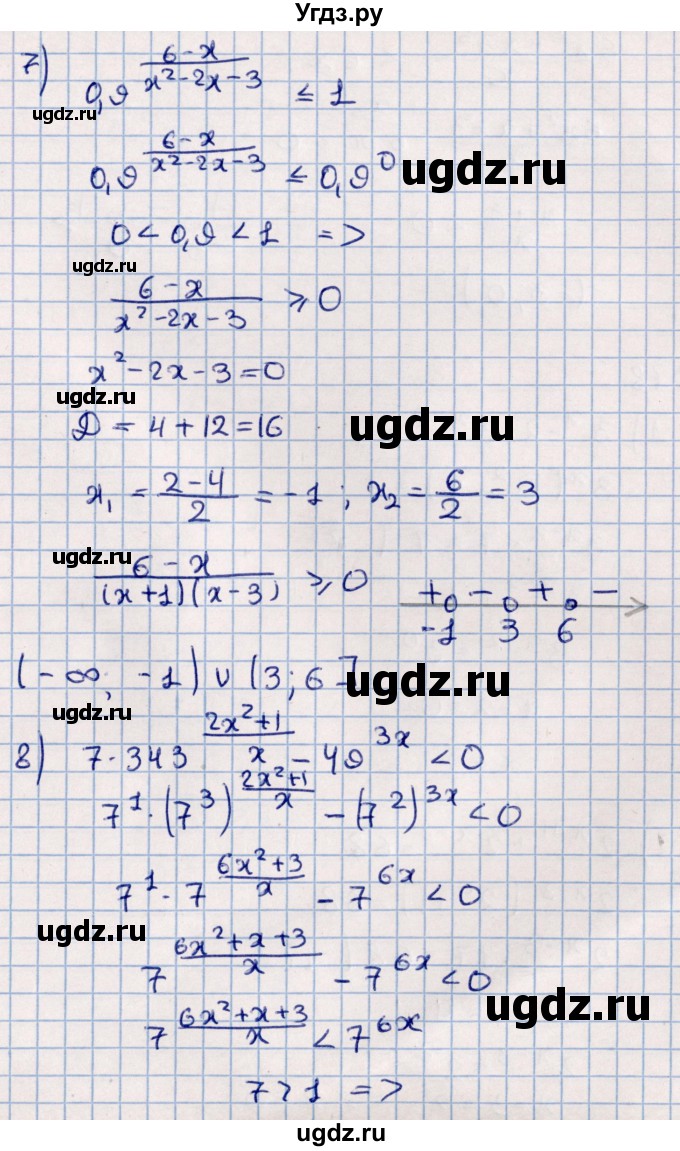 Угдз.ру
7) 0,9^((6-x)/(x²-2x-3)) ≤ 1
ugdz.ru
0,9^((6-x)/(x²-2x-3)) ≤ 0,9^0
ugdz.ru
0 < 0,9 < 1 =>
ugdz.ru
(6-x)/(x²-2x-3) ⩾ 0
x²-2x-3=0
ugdz.ru
D = 4+12=16
ugdz.ru
x₁ = (2-4)/2 = -1 ; x₂ = 6/2 = 3
ugdz.ru
(6-x)/((x+1)(x-3)) ⩾ 0
+ - + -
-1 3 6
(-∞; -1) ∪ (3; 6]
ugdz.ru
8) 7·343^((2x²+1)/x) - 49^(3x) < 0
7^1·(7^3)^((2x²+1)/x) - (7^2)^(3x) < 0
7^1·7^((6x²+3)/x) - 7^(6x) < 0
ugdz.ru
7^((6x²+x+3)/x) - 7^(6x) < 0
ugdz.ru
7^((6x²+x+3)/x) < 7^(6x)
7 > 1 =>
ugdz.ru